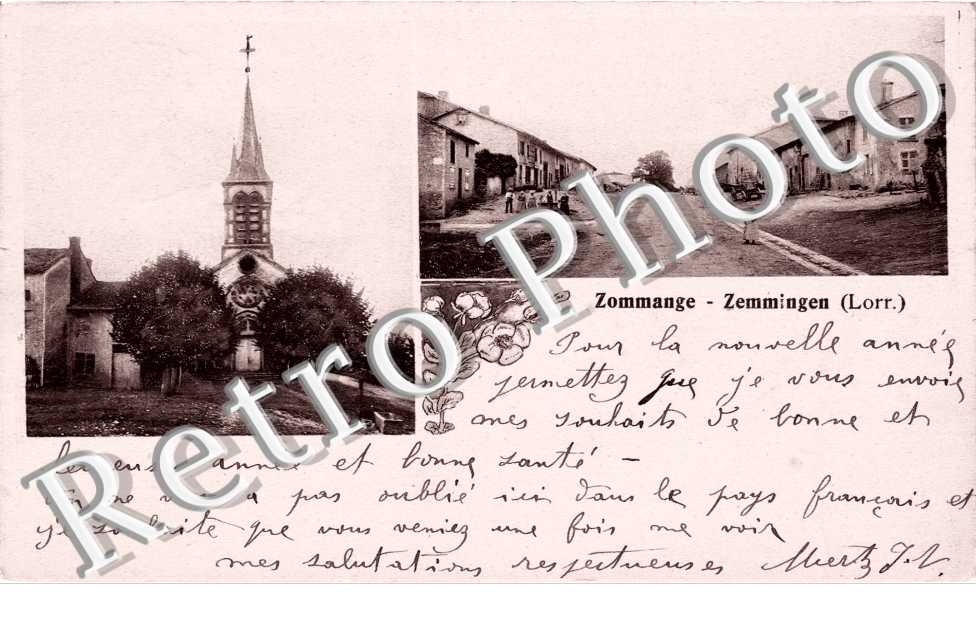 Retro Photo
Zommange - Zemmingen (Lorr.)
Pour la nouvelle année
permettez que je vous envoie
mes souhaits de bonne et
heureuse année et bonne santé -
On ne vous a pas oublié ici dans le pays français et
je souhaite que vous veniez une fois me voir
mes salutations respectueuses Muertz